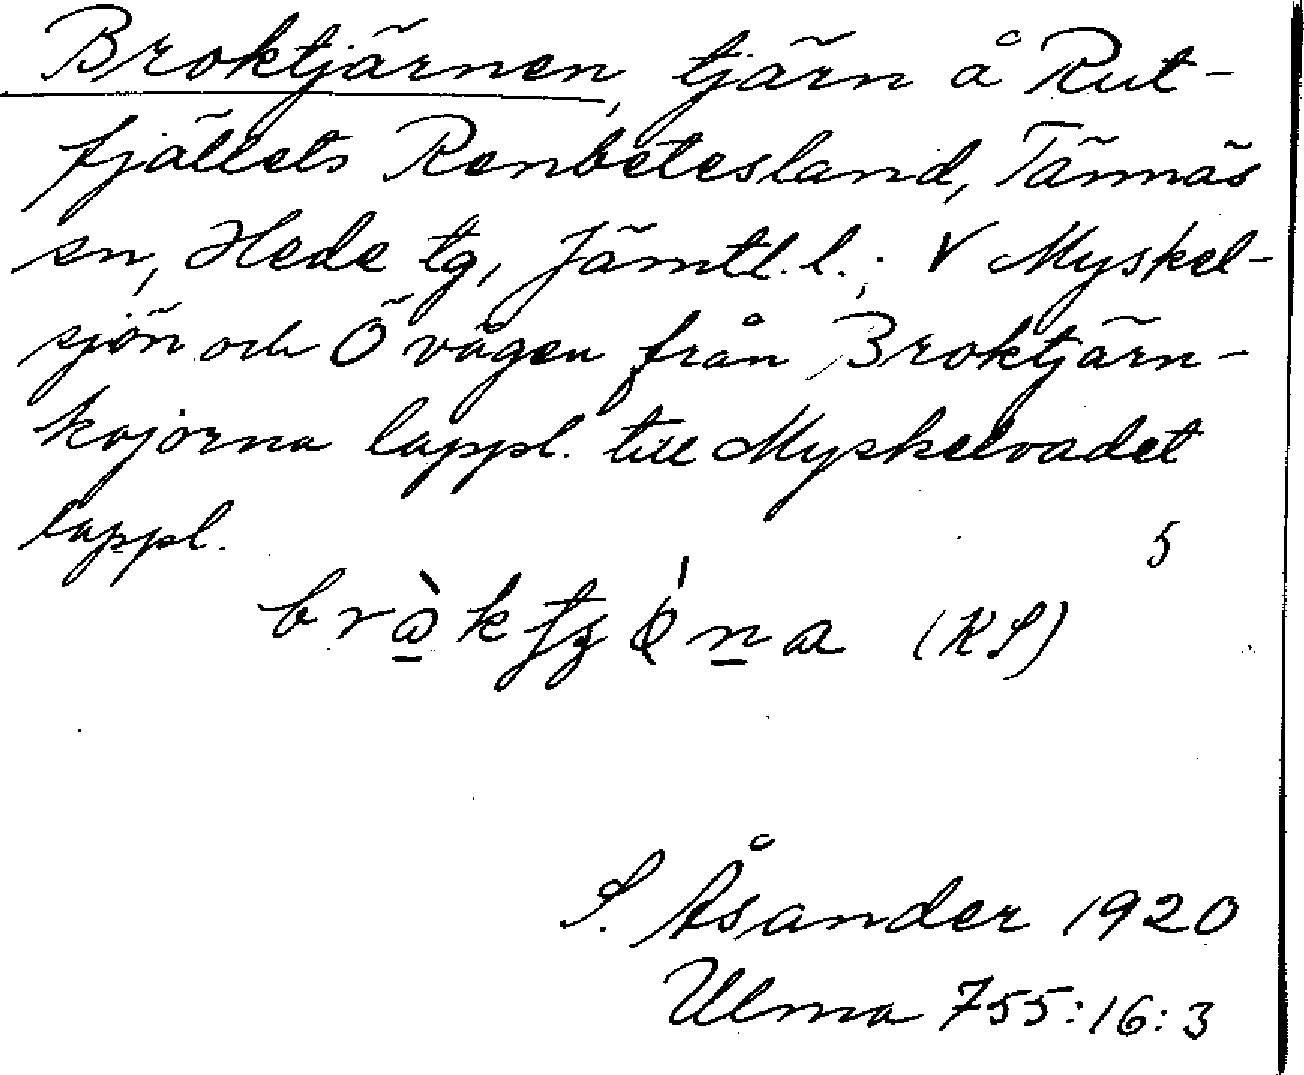 Broktjärnen, tjärn å Rut-
fjällets Renbetesland, Tännäs
sn, Hede tg, Jämtl. l.; V Myskel-
sjön och Ö vägen från Broktjärn-
kojorna lappl. till Myskelvadet
lappl.
5
(KS)
S. Åsander 1920
Ulma 755:16:3